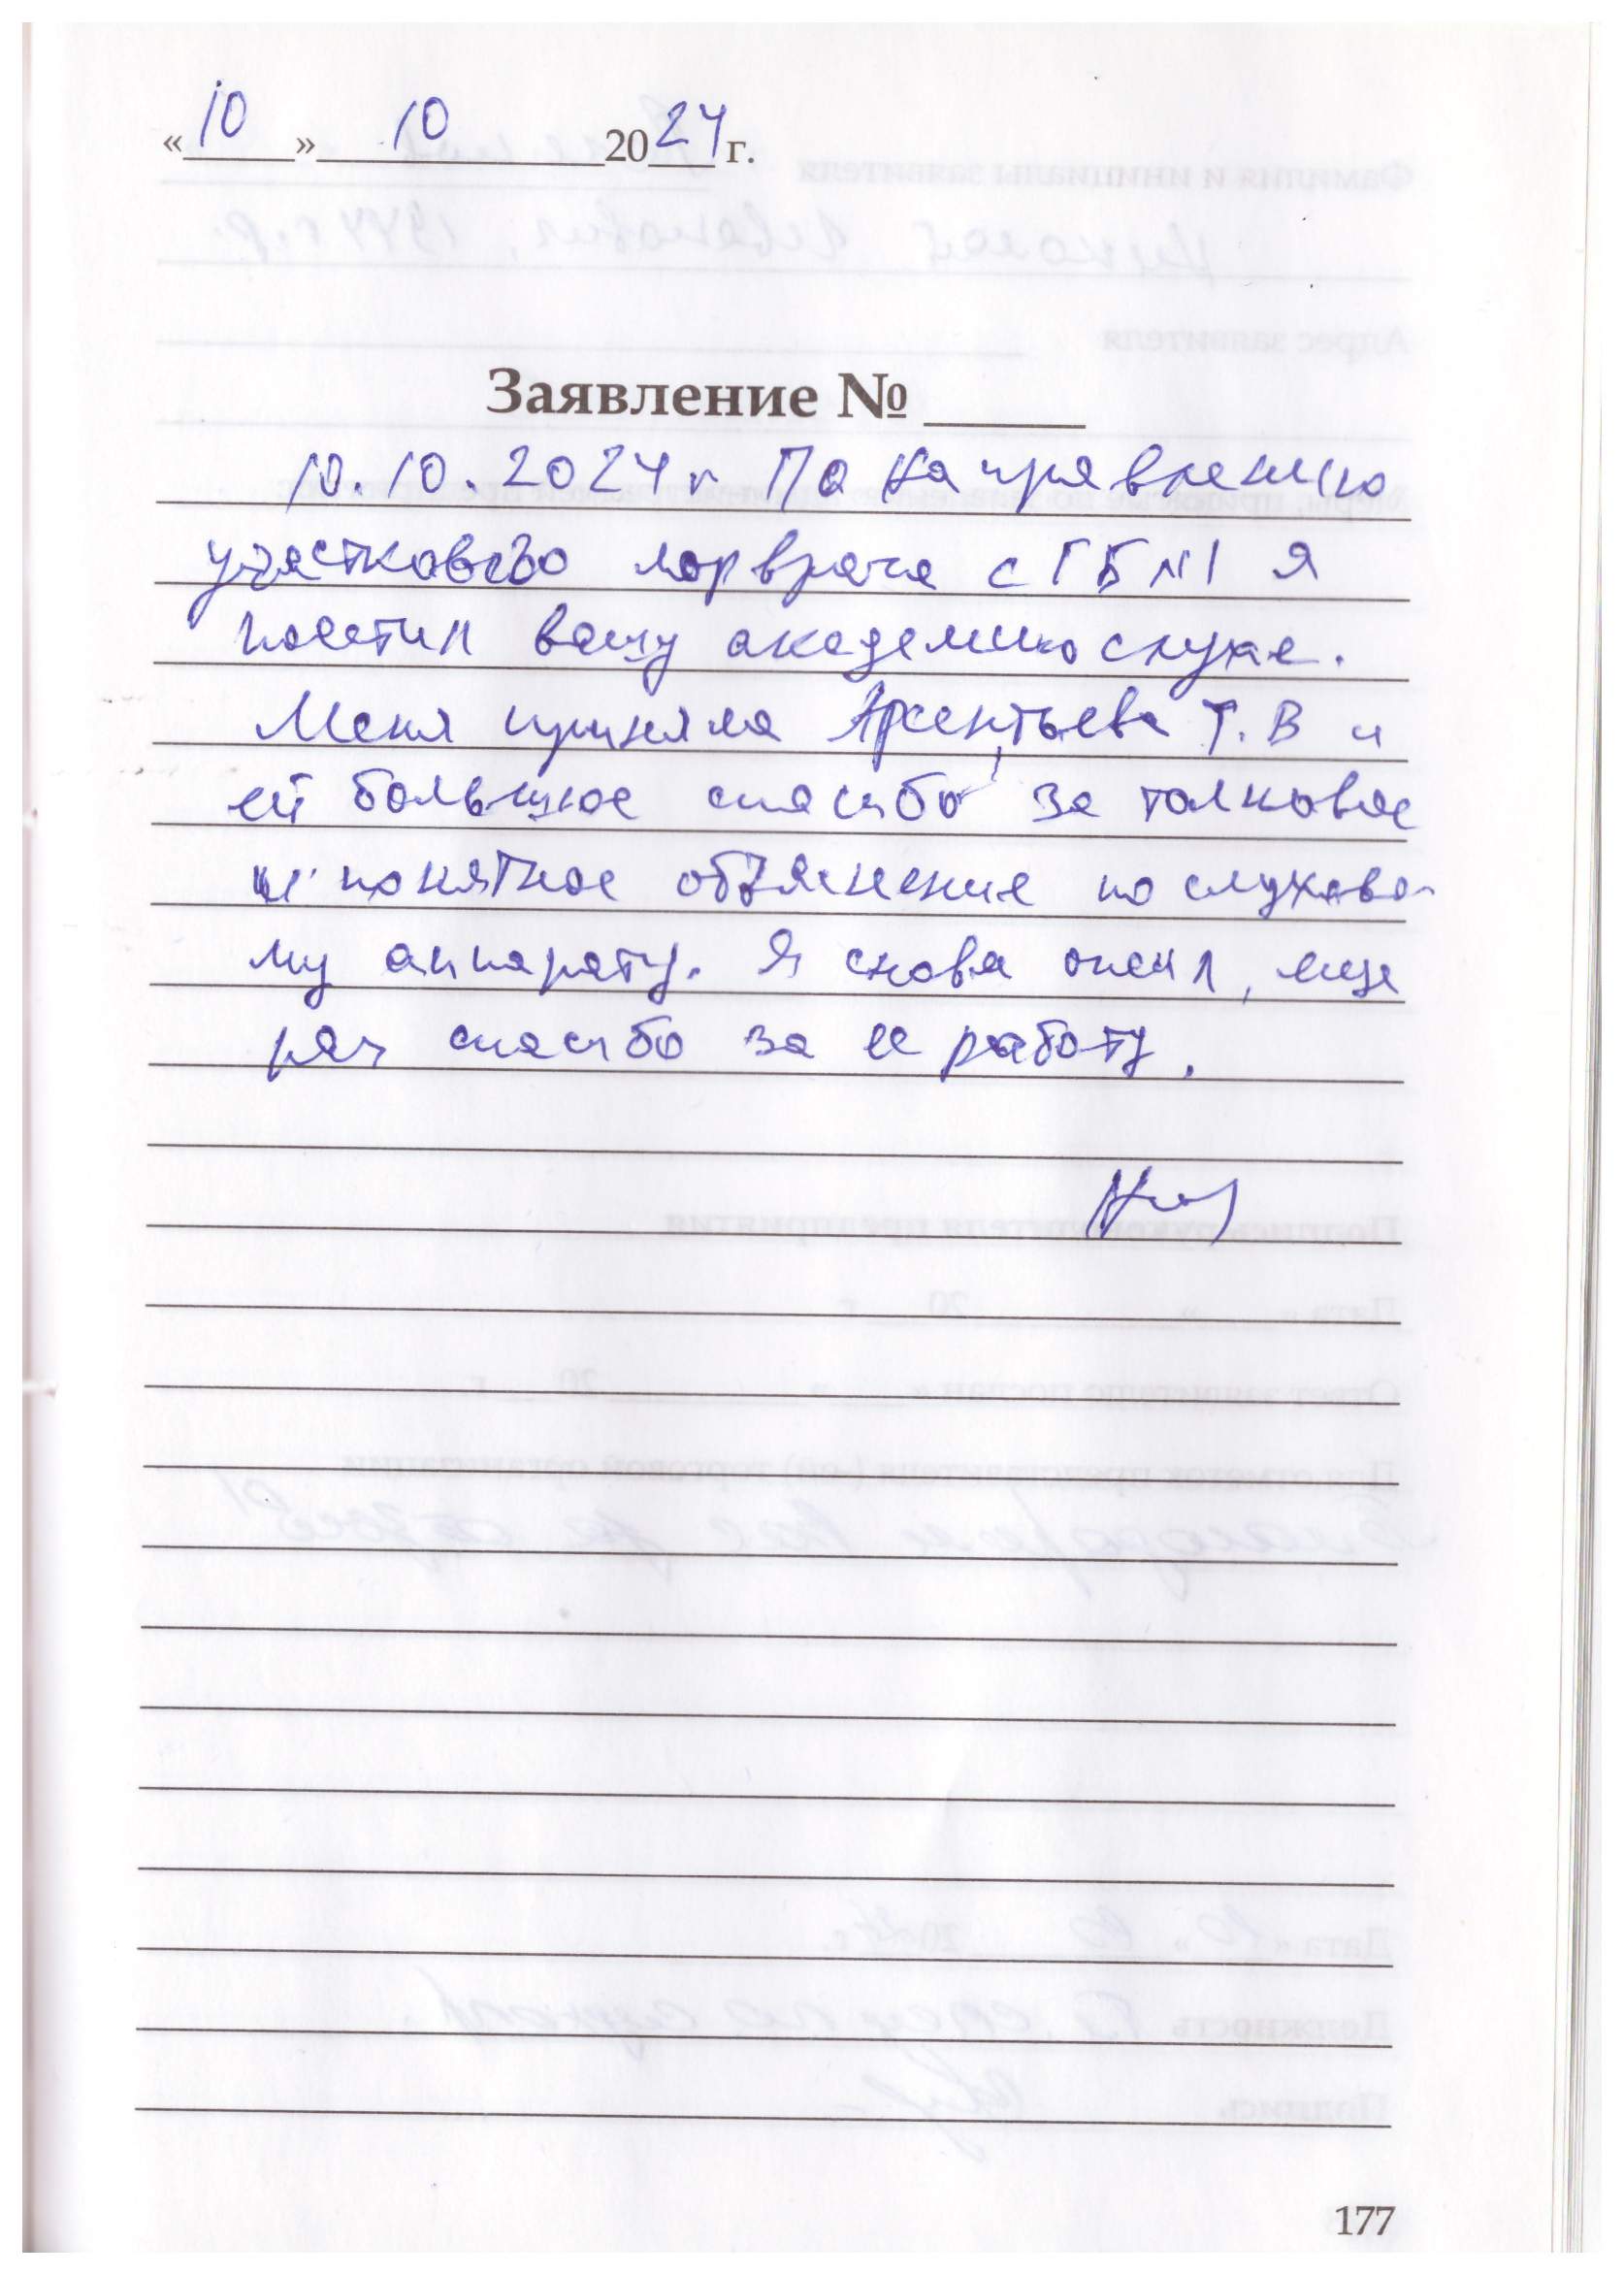 «10» 10 2024 г.
Заявление №
10.10.2024 г По направлению
участкового лор врача с ГБ №1 я
посетил вашу академию слуха.
Меня приняла Арсентьева Т.В и
ей большое спасибо за толковое
и понятное объяснение по слухово-
му аппарату. Я снова ожил, еще
раз спасибо за ее работу.
177